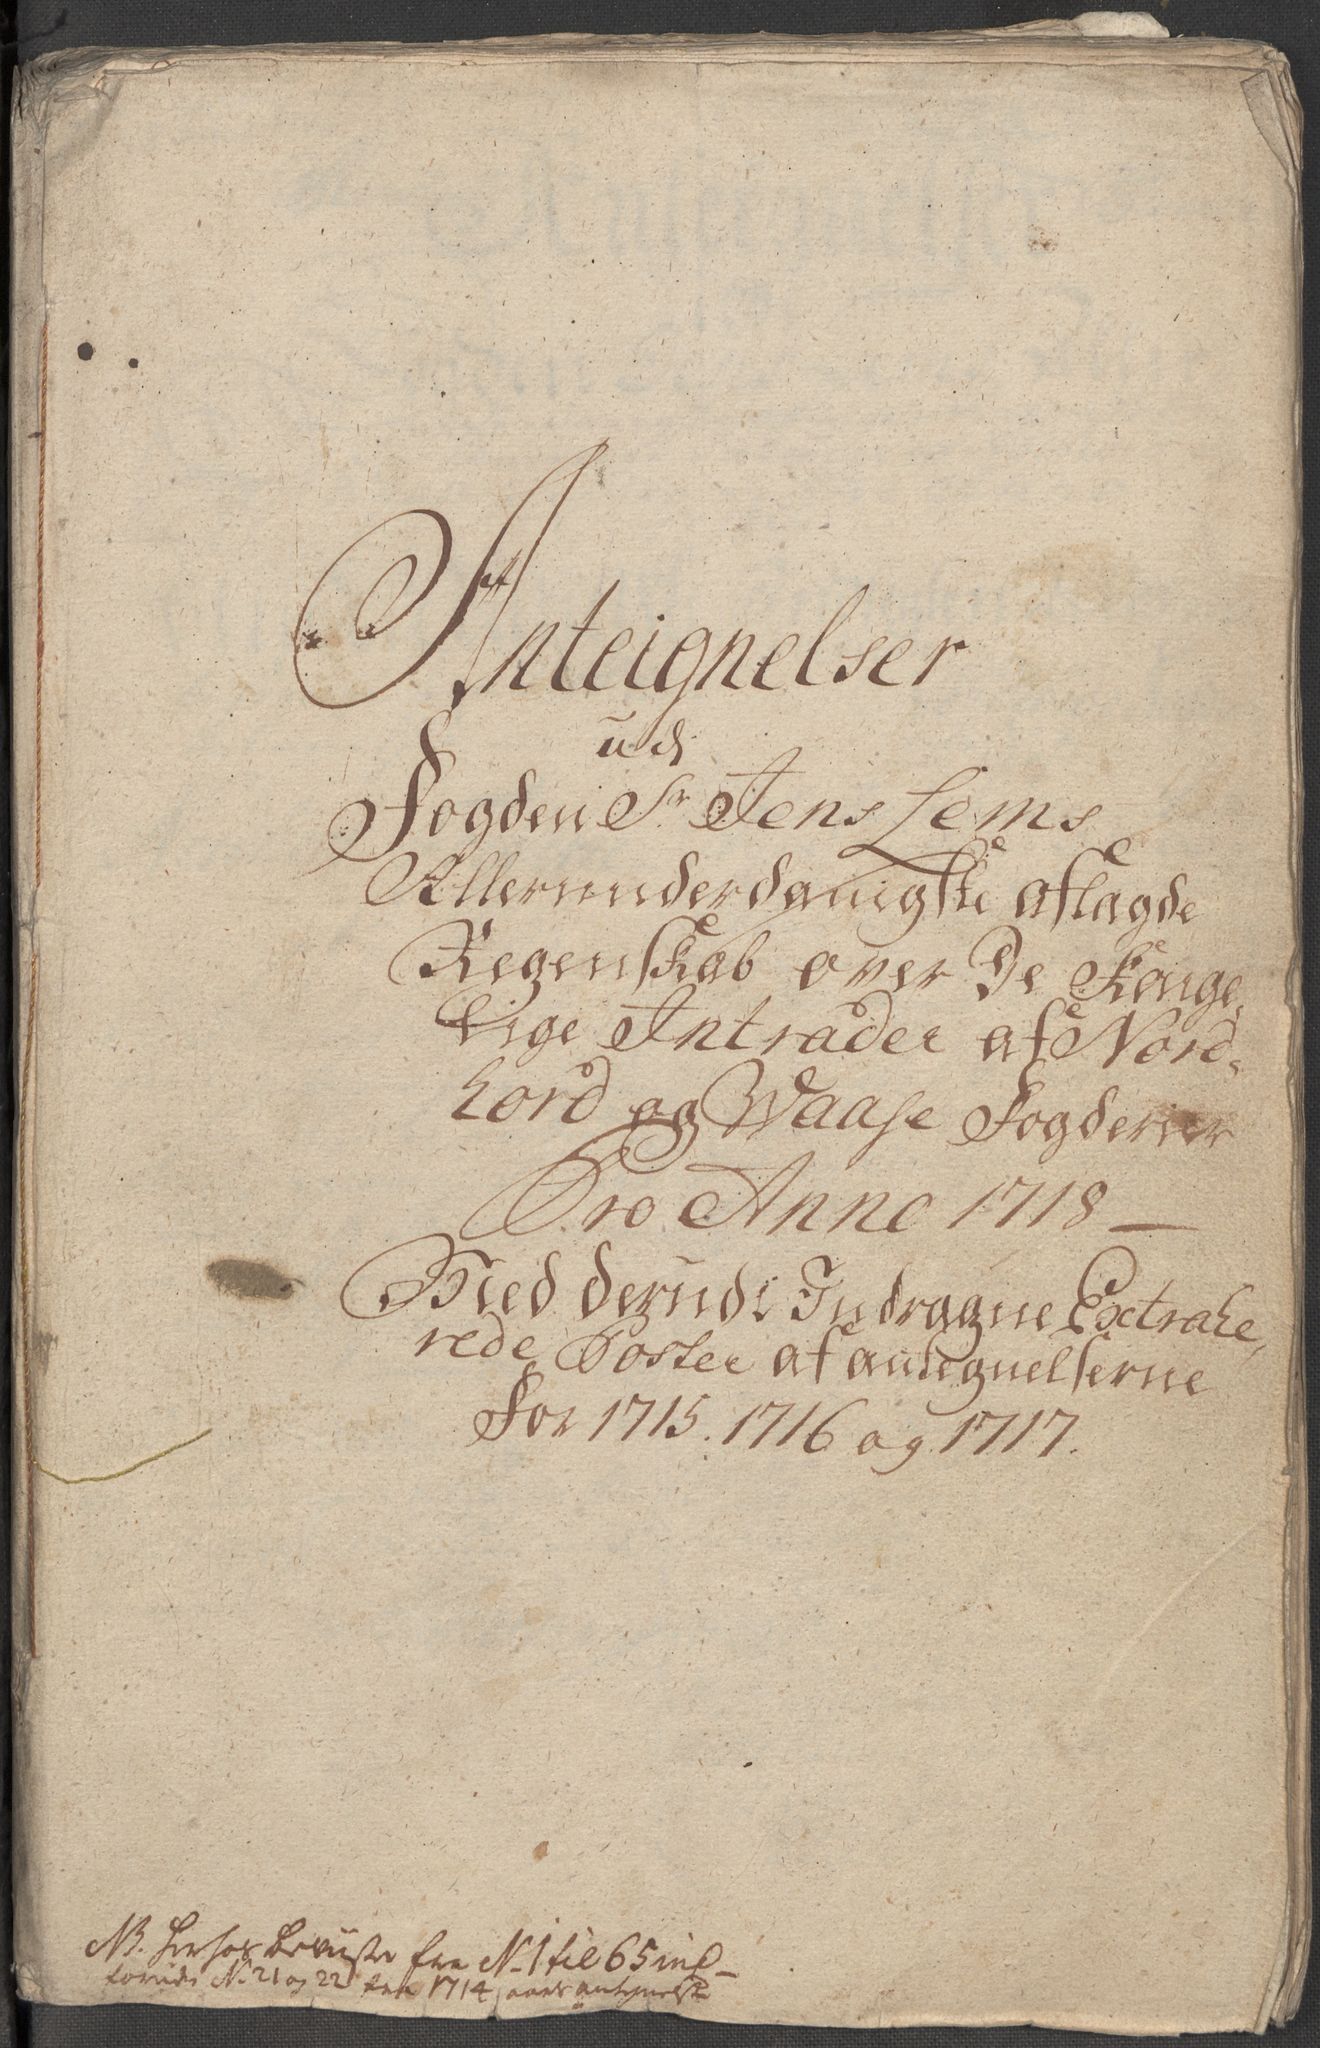 Anteignelser
udi
Fogden Sr Jens Lems
Allerunderdanigste aflagde
Regenskab over De Konge,
lige Intrader af Nord-
hord og Waase Fogderier
Pro Anno 1718
Med derudi Indragne Extrahe,
rede Poster af antegnelserne
For 1715. 1716 og 1717.
NB. herhos beviiser fra N. 1 til 65 incl
foruden N. 21 og 22 fra 1714 aars